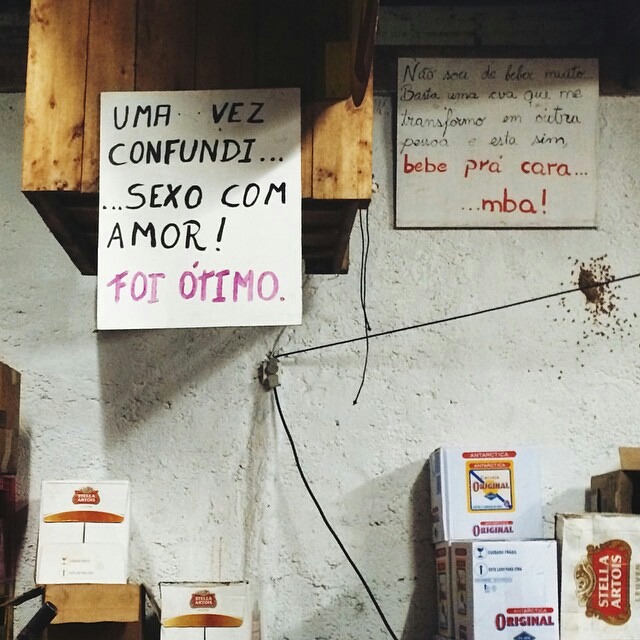 UMA VEZ
CONFUNDI...
...SEXO COM
AMOR!
FOI ÓTIMO.
Não sou de beber muito...
Basta uma que me
transformo em outra
pessoa e esta sim,
bebe prá cara...
...mba!
STELLA
ARTOIS
STELLA
ARTOIS
ANTARCTICA
ANTARCTICA
ORIGINAL
ORIGINAL
CUIDADO FRÁGIL
ESTE LADO PARA CIMA
ANTARCTICA
ORIGINAL
STELLA
ARTOIS